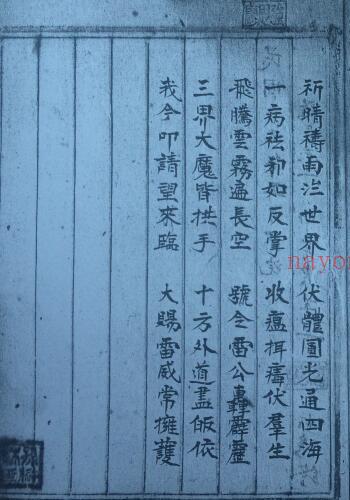 祈晴禱雨治世界 伏體圓光通四海
一病祛邪如反掌 收瘟揖瘧伏羣生
飛騰雲霧遍長空 號令雷公轟霹靂
三界大魔皆拱手 十方外道盡皈依
我今叩請望來臨 大賜雷威常擁護
nayo